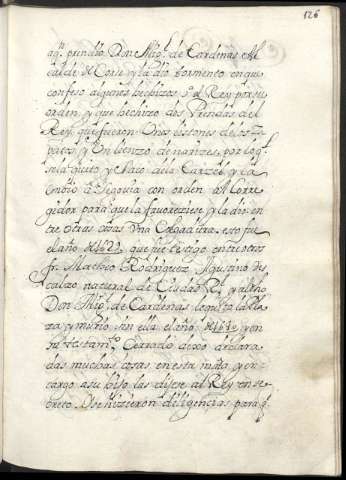 126
aqn. prendio Don Migl. de Cardenas Al
calde de Corte y la dio tormento en que
confeso algunos hechizos al Rey por su
orden, y que hechizo dos Prendas del
Rey, que fueron Unos listones de los Za
patos y Un lienzo de narizes, por lo ql.
se la quito y saco de la Carzel y la
embio a Segovia con orden al Corre
gidor para que la favoreziese y la dio en
tre otras cosas Una Colgadura. esto fue
el año de 1622 que fue testigo entre otros
fr. Rodriguez Agustino des
calzo natural de Ciudad Rl. y al dho
Don Migl. de Cardenas le quita la Pla
za y murio sin ella el año de y en
su testamto. Cerrado dexo declara
das muchas cosas en esta mata. y en
cargo a su hijo las dijese al Rey en se
creto. Y se hizieron diligencias para q.